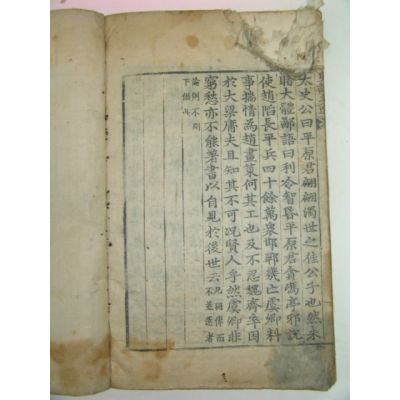 太史公曰平原君翩翩濁世之佳公子也然未
睹大體鄙語曰利令智昏平原君貪馮亭邪說
使趙陷長平兵四十餘萬衆邯鄲幾亡虞卿料
事揣情為趙畫策何其工也及不忍魏齊卒困
於大梁庸夫且知其不可況賢人乎然虞卿非
窮愁亦不能著書以自見於後世云
凡同傳而
不並選者
論例不列
下倣此